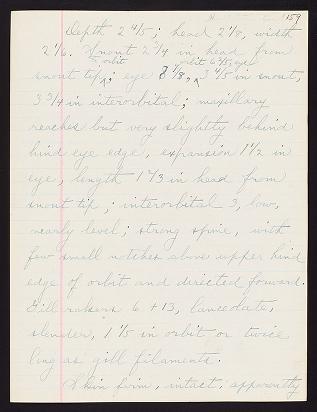 159
Depth 2 4/5; head 2 1/8, width
2 1/6. Snout 2 3/4 in head from
snout tip; eye 3 1/8, 3 4/5 in snout,
orbit
3 3/4 in interorbital; maxillary
reaches but very slightly behind
hind eye edge, expansion 1 1/2 in
eye, length 1 2/3 in head from
snout tip; interorbital 3, low,
nearly level; strong spine, with
few small notches above upper hind
edge of orbit and directed forward.
Gill rakers 6 + 13, lanceolate,
slender, 1 1/5 in orbit or twice
long as gill filaments.
Skin firm, intact, apparently